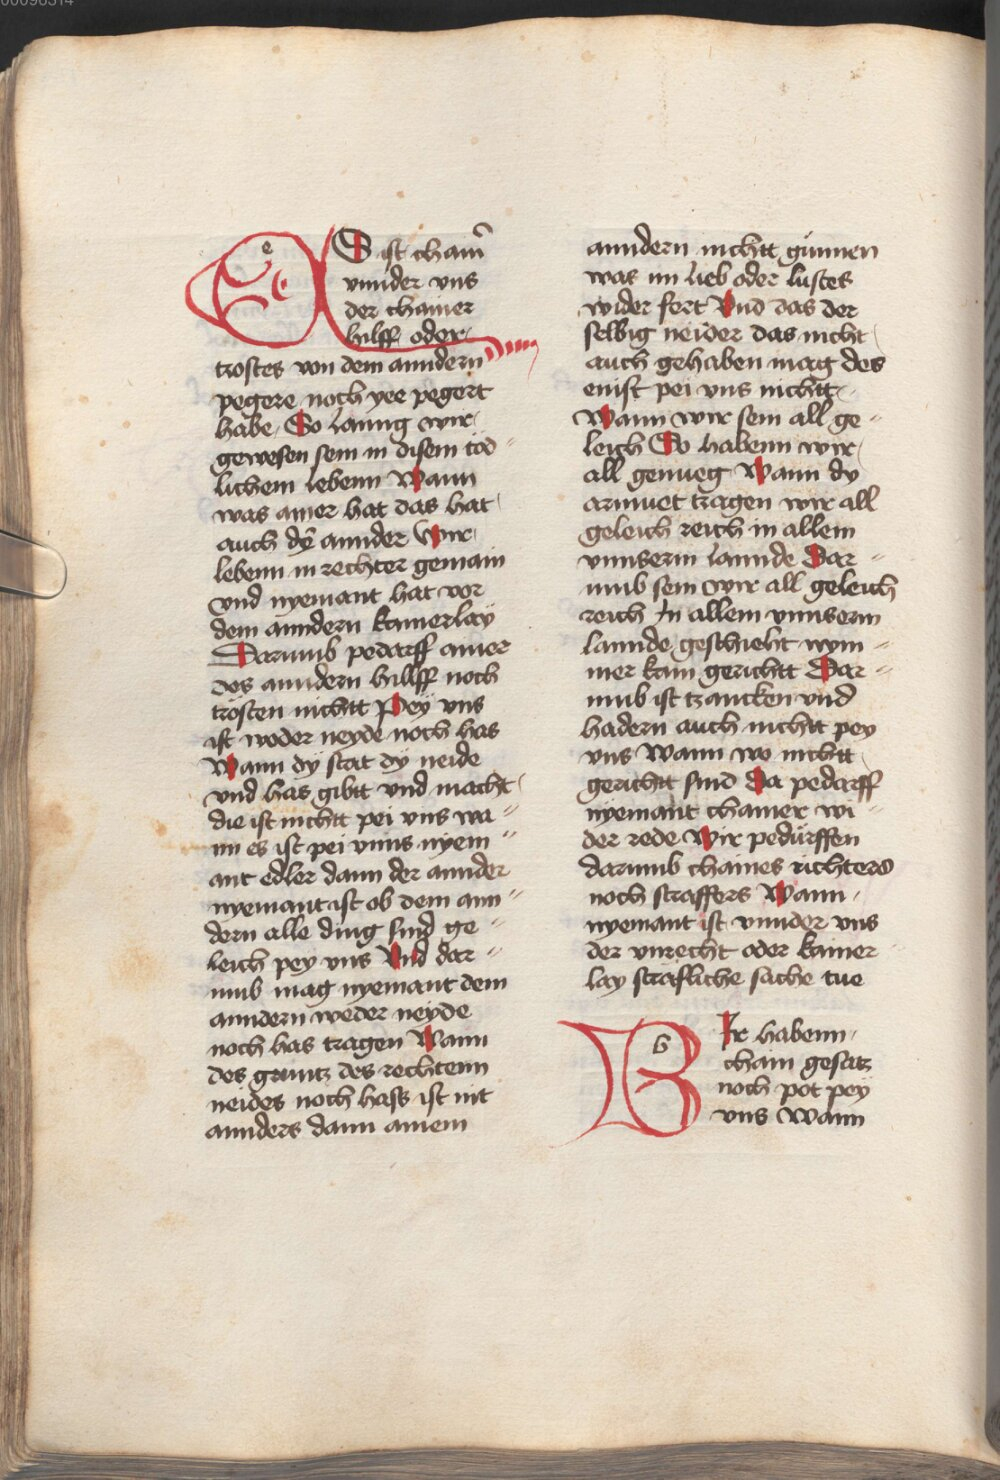 00096314
ES ist chain̄
vnnder vns
der chainer
hilff oder
trostes von dem anndern
pegere noch yee pegert
habe So lanng wir
gewesen sein in disem töd
lichem lebenn Wann
was ainer hat das hat
auch dy annder Wir
lebenn in rechter gemain
vnd nyemant hat vor
dem anndern kainerlay
Darumb pedarff ainer
des anndern hillff noch
trösten nichtt Pey vns
ist weder neyde noch has
Wann dy stat dy neide
vnd has gibtt vnd macht
die ist nichtt pei vns wa
nn es ist pei vnns nyem
ant edler dann der annder
nyemant ist ob dem ann
dern alle ding sind ge
leich pey vns Vnd dar
umb mag nyemant dem
anndern weder neyde
noch has tragen Wann
des gruntz des rechtenn
neides noch hass ist nit
annders dann ainem
anndern nichtt günnen
was im lieb oder lustes
wider fert Vnd das der
selbig neider das nicht
auch gehaben mag des
enist pei vns nichtt
Wann wir sein all ge
leich So habenn wir
all genueg Wann dy
armuet tragen wir all
geleich reich in allem
vnnserm lannde Dar
umb sein wir all geleich
reich In allem vnnserm
lannde geschieht nym
mer kain gerichtt Dar
umb ist tzancken vnd
hadern auch nichtt pey
vns Wann wo nichtt
gerichtt sind Da pedarff
nyemant chainer wi
der rede Wir pedürffen
darumb chaines richters
noch straffers Wann
nyemant ist vnnder vns
der vnrecht oder kainer
lay strafliche sache tue
WIr habenn
chain gesatz
noch pot pey
vns Wann